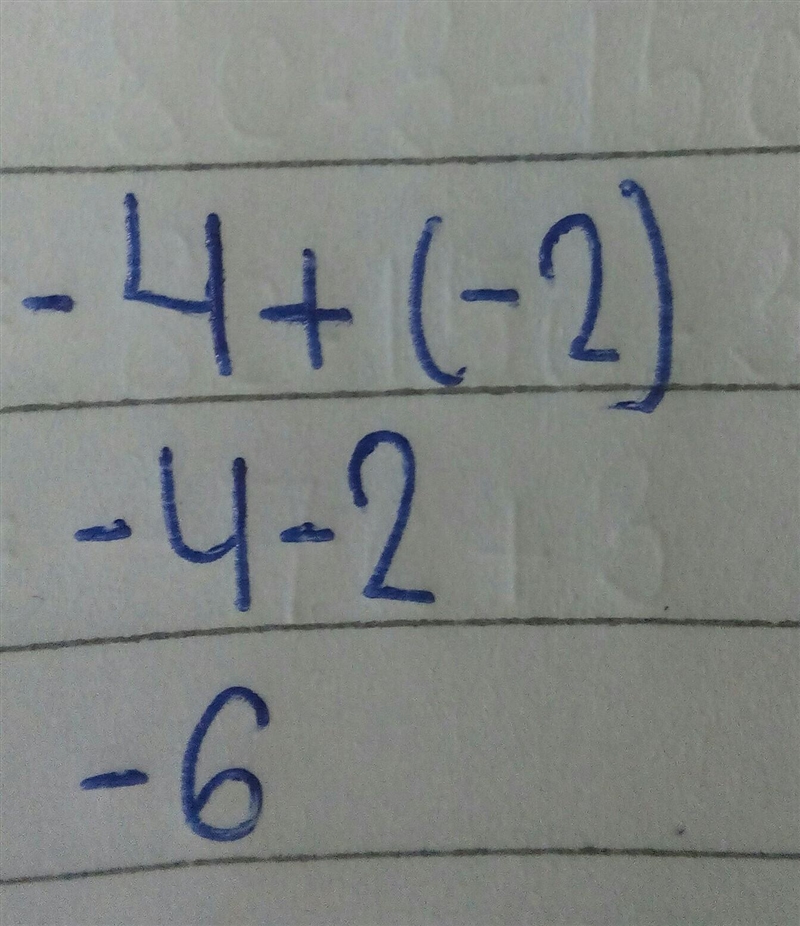 -4+(-2)
-4-2
-6